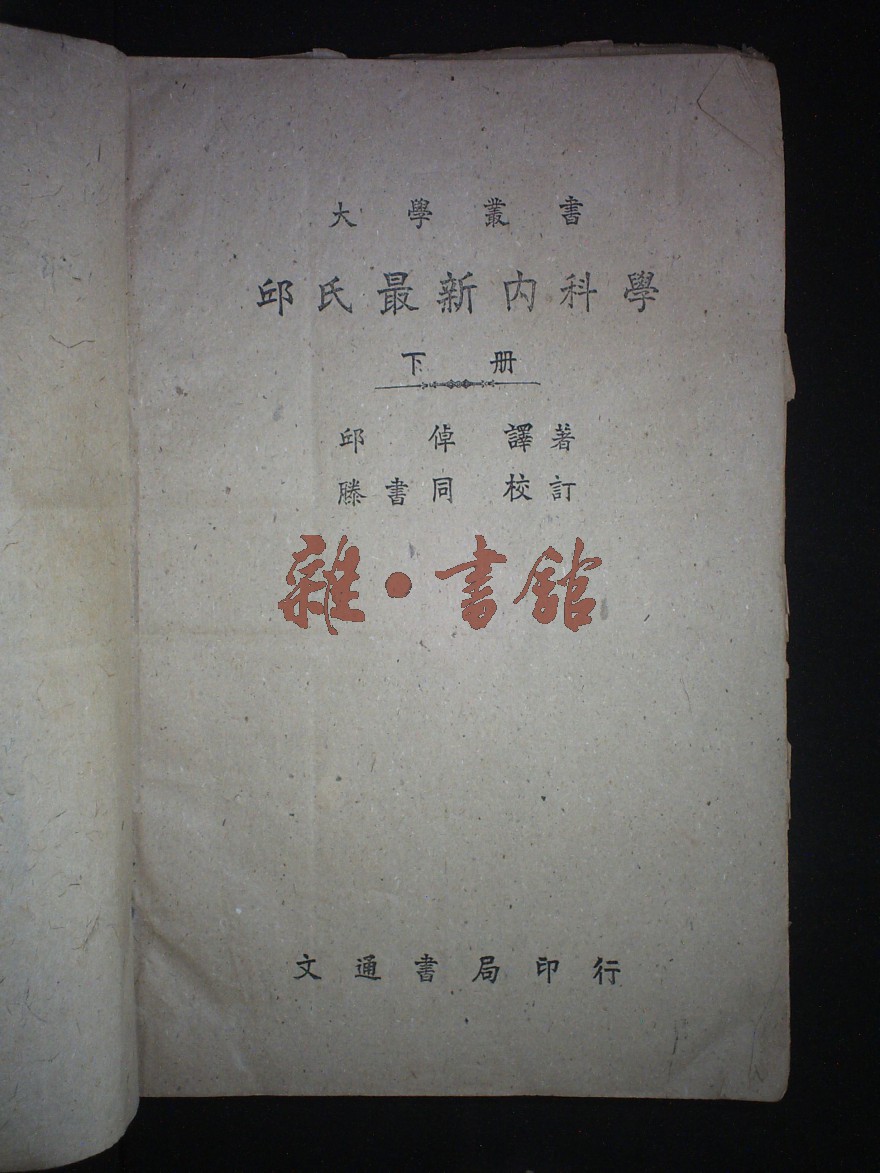 大學叢書
邱氏最新內科學
下册
邱倬譯著
滕書同校訂
雜·書館
文通書局印行